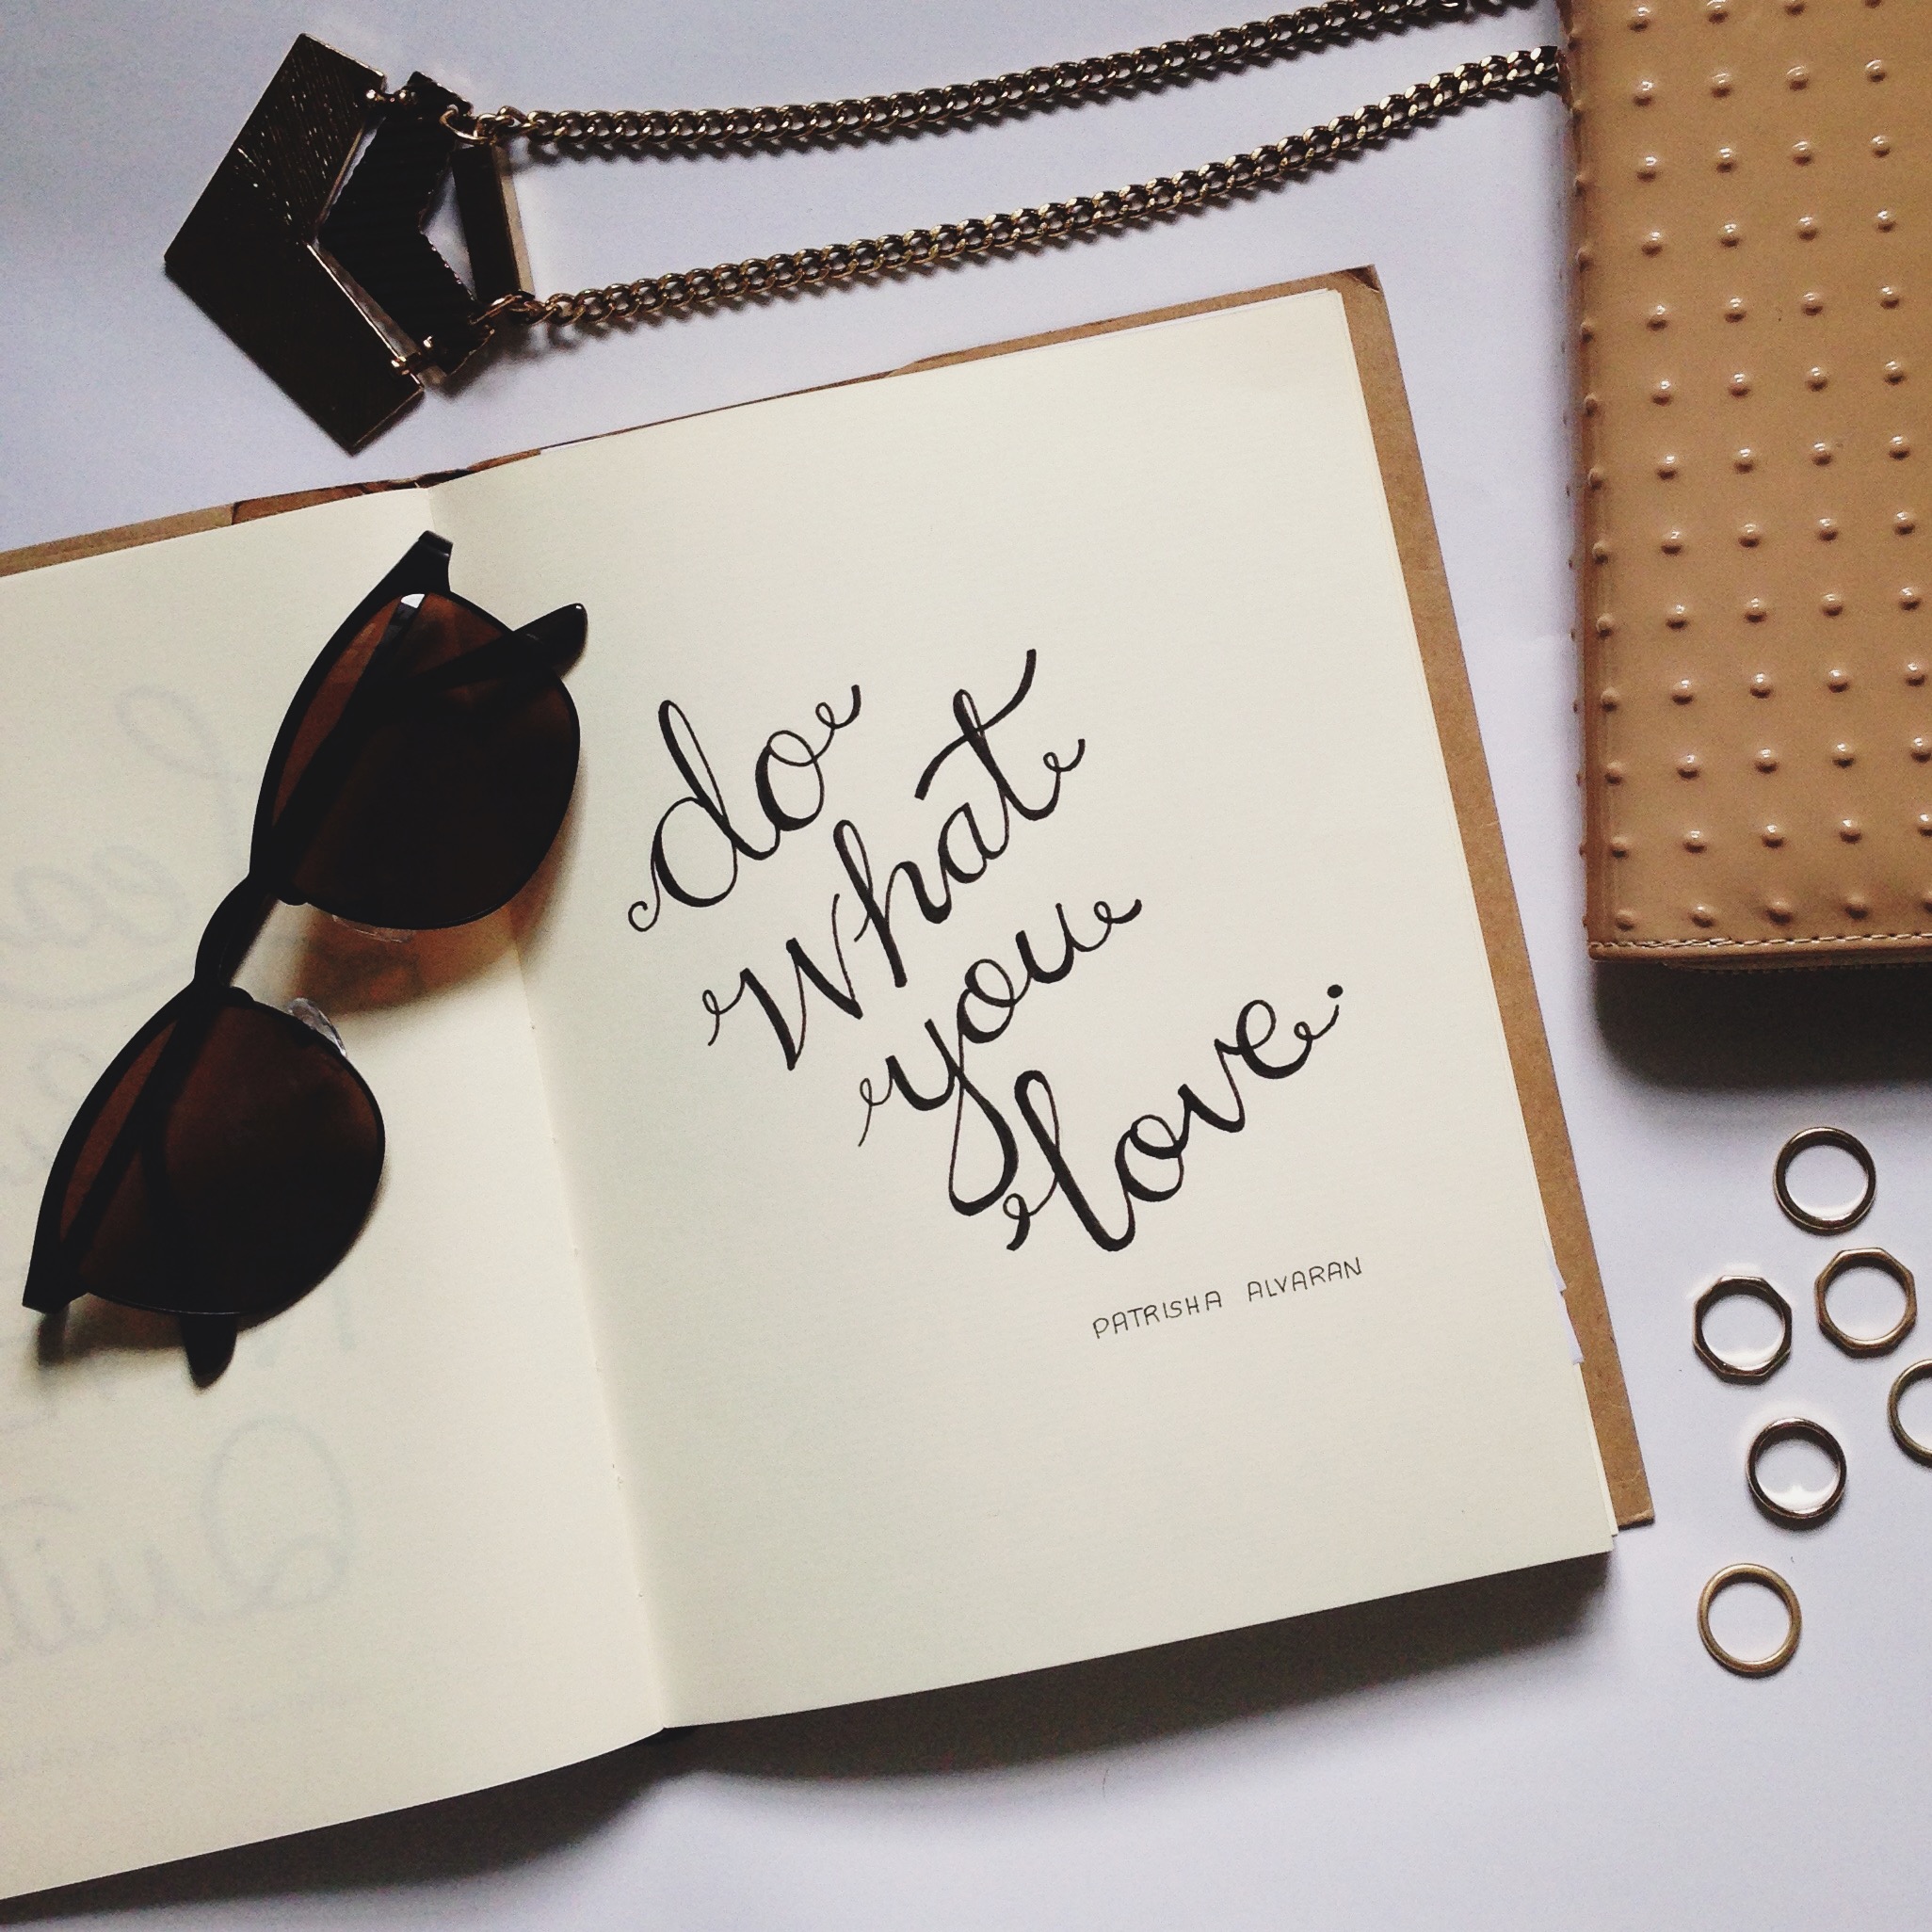 do
what
you
love.
PATRISHA ALVARAN